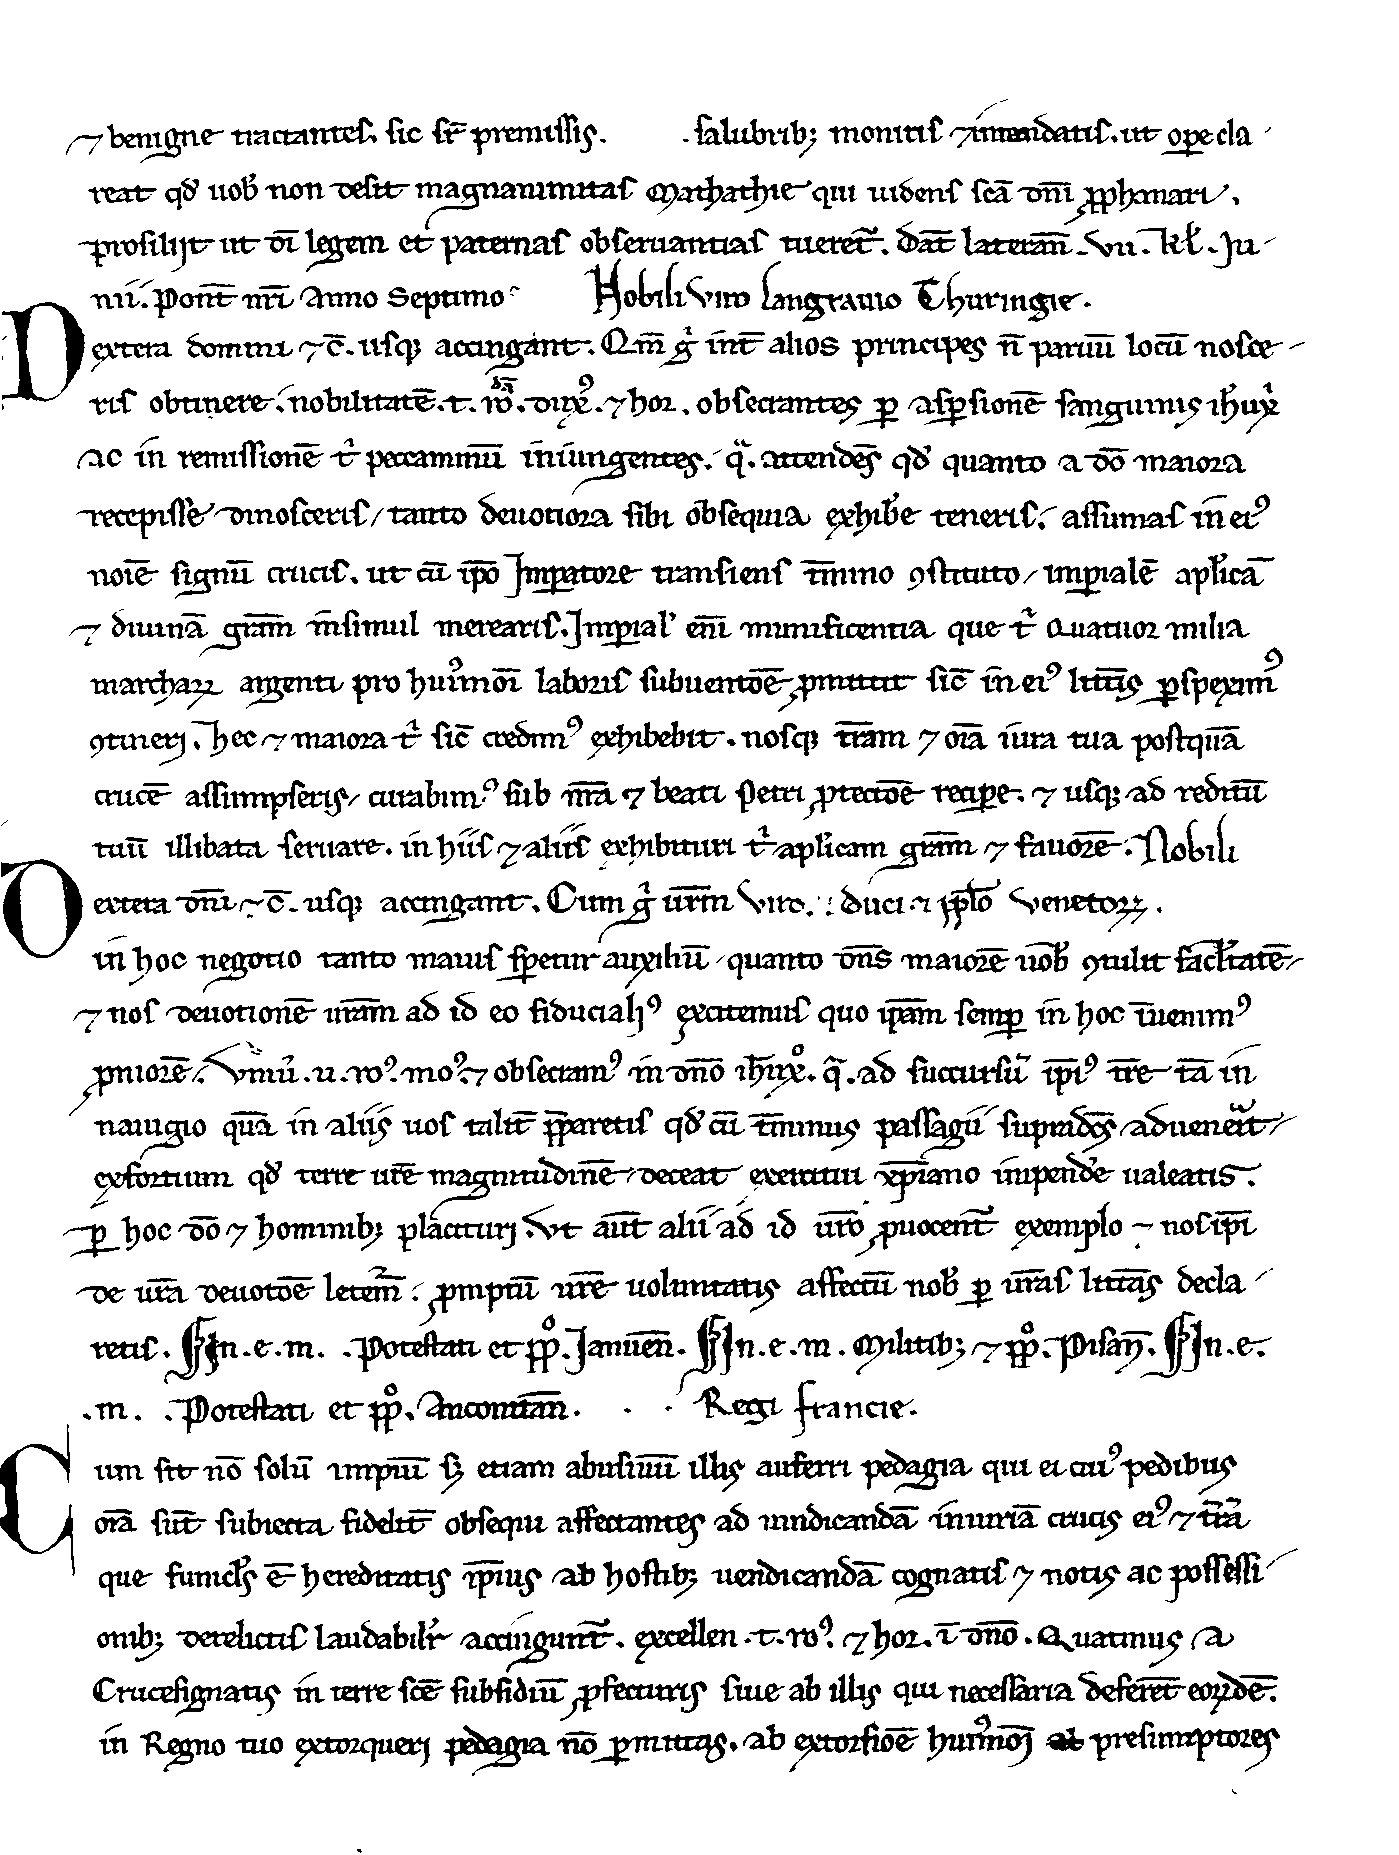 ⁊ benigne tractantes. sic sr̄ premissis. . salubrib; monitis ⁊ intendatis. ut ope cla
reat qđ uob̄ non desit magnanimitas Mathathie qui uidens scā dn̄i ꝓphanari.
prosilijt ut dī legem et paternas obseruantias tueret᷑. Dat̄ lateran̄. Vii. kl̄. Ju
nii. Pont̄ nr̄i Anno Septimo Nobili viro langrauio Thuringie.
Dextera domini ⁊ c̄. usq; accingant. Qm̄ gͥ int̄ alios principes n̄ paruū locū nosce
ris obtinere. nobilitatē. t. ⁊ hor. obsecrantes ꝑ aspersionē sanguinis
ac in remissionē tͥ peccaminū iniungentes. qͣ. attendēs qđ quanto a dō maiora
recepisse dinosceris/ tanto deuotiora sibi obsequia exhibe᷑ teneris. assumas in eiꝰ
noīe signū crucis. ut cū ip̄o Imperatore transiens t̄mino ꝯstituto/ imperialē apl̄icā
⁊ diuinā gr̄am insimul merearis. Imperial᷑ eni᷑ munificentia que tͥ quatuor milia
marchaꝝ argenti pro huiꝰmōi laboris subuentōe ꝓmittit sic̄ in eiꝰ litt̄is ꝑspeximꝰ
ꝯtineri. hec ⁊ maiora tͥ sic̄ credimꝰ exhibebit. nosq; t̄ram ⁊ oīa iura tua postquā
crucē assumpseris/ curabimꝰ sub nr̄a ⁊ beati Petri ꝓtectōe recipe. ⁊ usq; ad reditū
tuū illibata seruare. in hiis ⁊ aliis exhibituri tͥ aplicam gr̄am ⁊ fauorē. Nobili
Dextera dn̄i ⁊ c̄. usq; accingant. Cum gͥ ur̄m Viro. : duci ⁊ pp̄lo Venetoꝝ.
in hoc negotio tanto maius speret᷑ auxiliū quanto dn̄s maiorē uob̄ ꝯtulit facultatē
⁊ nos deuotionē ur̄am ad id eo fiducialiꝰ excitemus quo ip̄am semꝑ in hoc īuenimꝰ
ꝓniorē. u. roꝰ. moꝰ. ⁊ obsecramꝰ in dn̄o. qͣ. ad succursū ip̄iꝰ t̄re tā in
nauigio quā in aliis uos talit̄ p̄paretis qđ cū t̄minus passagii supradc̄s aduenerit
exfortium qđ terre ur̄e magnitudinē deceat exercitui xp̄iano impende᷑ ualeatis.
ꝑ hoc dō ⁊ hominib; placituri. Vt aut̄ alii ad id ur̄o ꝓuocent᷑ exemplo ⁊ nos ip̄i
de ur̄a deuotōe letem᷑: ꝓmptū ur̄e uoluntatis affectū nob̄ ꝑ ur̄as litt̄as decla
retis. In. e. m. . Potestati et pp̊. Januen̄. In. e. m. Militib; ⁊ pp̊. Pisan̄. In. e.
.m. . Potestati et pp̊. Anconitan̄. . . Regi francie.
Cum sit nō solū impiū s; etiam abusiuū illis auferri pedagia qui ei cuiꝰ pedibus
oīa sūt subiecta fidelit̄ obsequi affectantes ad uindicandā iniuriā crucis eiꝰ ⁊ t̄rā
que funicl̄s ē hereditatis ip̄ius ab hostib; uendicandā cognatis ⁊ notis ac possessi
onib; derelictis laudabilit̄ accingunt᷑. excellen. t. roꝰ. ⁊ hor. ī dn̄o. Quatinus a
Crucesignatis in terre scē subsidiū ꝓfecturis siue ab illis qui necessaria deferēt eoꝝdē.
in Regno tuo extorqueri pedagia nō ꝑmittas. ab extorsiōe huiꝰmōi presumptores